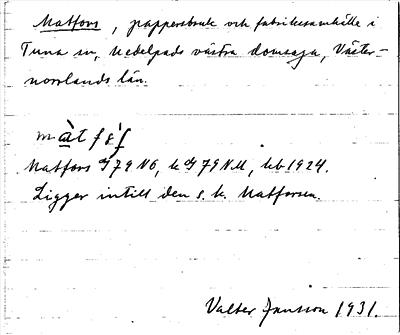 Matfors, pappersbruk och fabrikssamhälle i
Tuna sn, Medelpads västra domsaga, Väster-
norrlands län.
Matfors J 79 NO, k J 79 N.M, kb 1924.
Ligger intill den s. k. Matforsen.
Valter Jansson 1931.